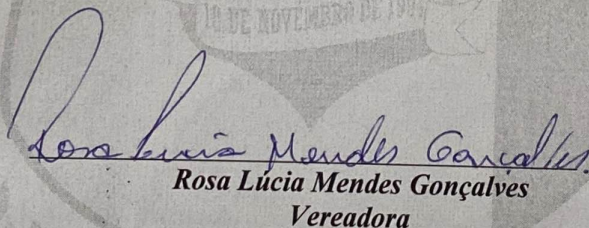 10 DE NOVEMBRO DE
Rosa Lúcia Mendes Gonçalves
Rosa Lúcia Mendes Gonçalves
Vereadora